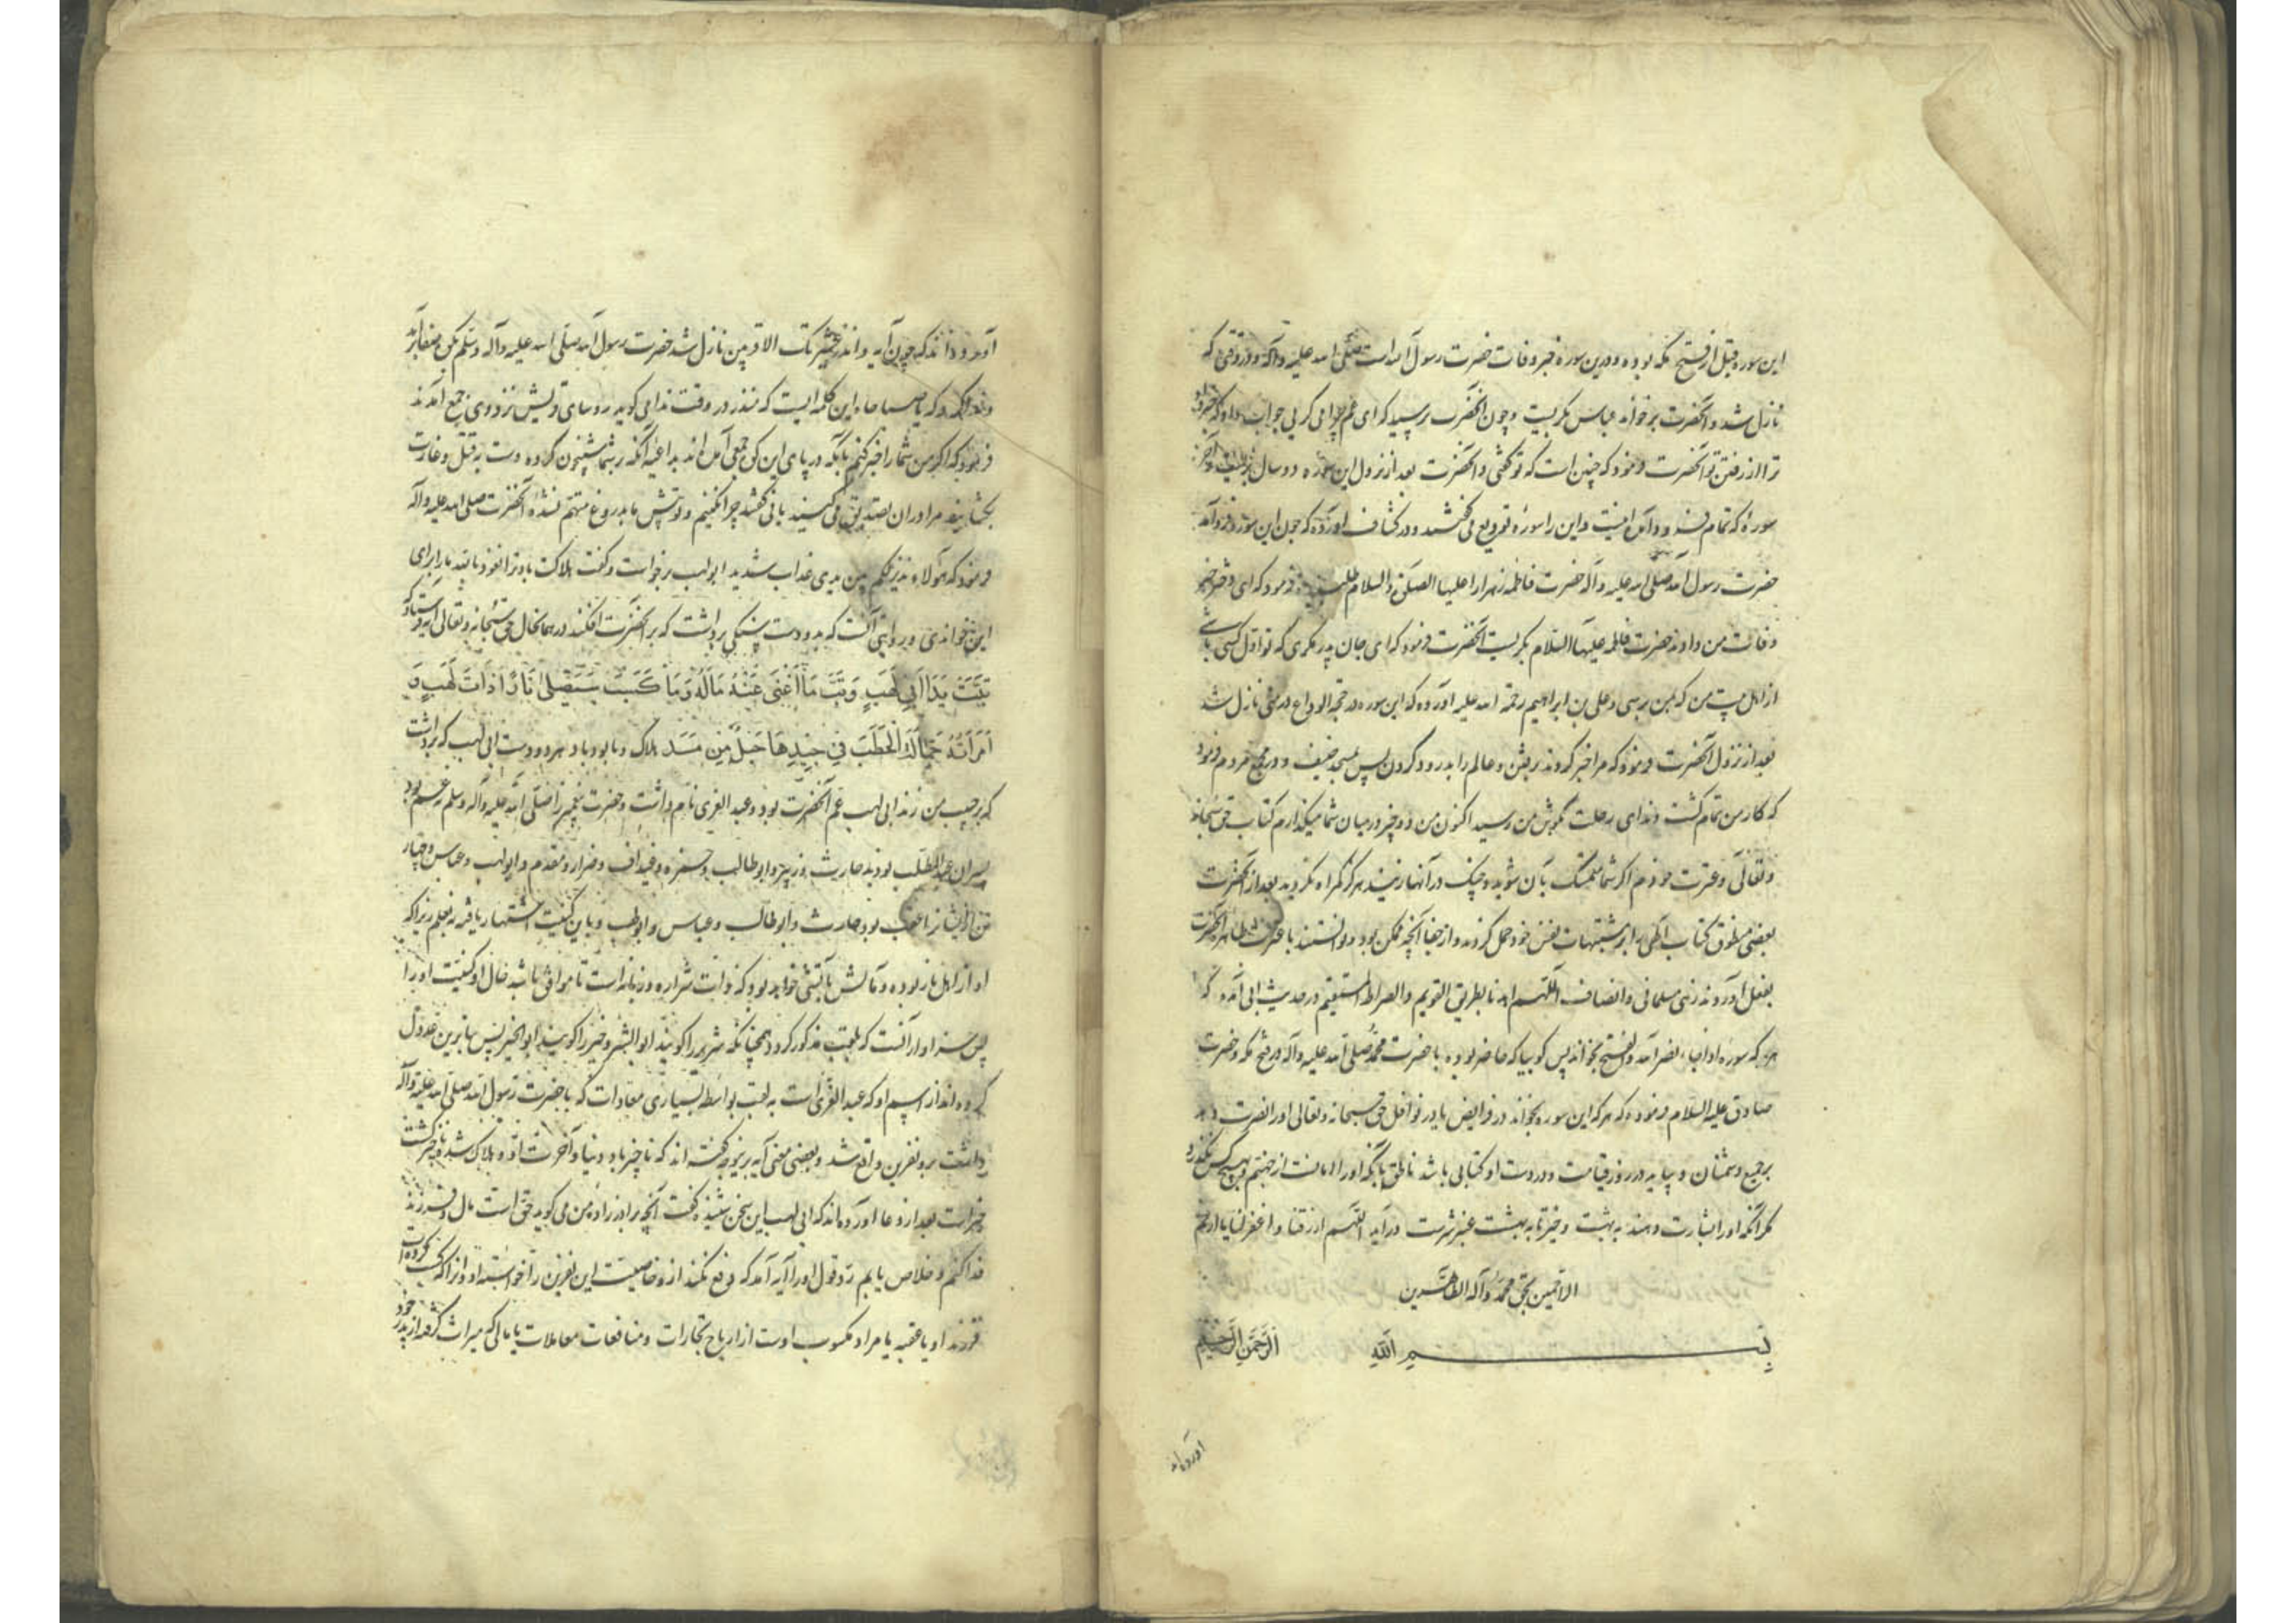 این سوره قبل از فتح مکه بوده و درین سوره خبر وفات حضرت رسول الله است صلی الله علیه وآله و روزی که
نازل شد و آنحضرت برخواند عباس بکریست و چون آنحضرت پرسید که ای عم چرا می گریی جواب داد که خبر
ترا از رفتن تو آنحضرت فرمود که چنین است که تو گفتی و آنحضرت بعد از نزول این سوره دو سال بزیست و آخر
سورهٔ که تمام فرود آمد اینست و این را سورهٔ تودیع می گفتند و در کشاف آورده که چون این سوره فرود آمد
حضرت رسول الله صلی الله علیه وآله حضرت فاطمه زهرا را علیها الصلوة والسلام طلبید و فرمود که ای دختر خبر
وفات من دادند حضرت فاطمه علیها السلام بکریست آنحضرت فرمود که ای جان پدر مکری که تو اول کسی باشی
از اهل بیت من که بمن برسی و علی بن ابراهیم رحمة الله علیه آورده که این سوره در حجة الوداع در منی نازل شد
بعد از نزول آنحضرت فرمود که مرا خبر کردند برفتن و عالم را بدرود کردن پس بمسجد خیف و در مجمع مردم فرمود
که کار من تمام کشت و ندای رحلت بگوش من رسید اکنون من دو چیز در میان شما میگذارم کتاب حق سبحانه
و تعالی و عترت خودم اگر شما متمسک بآن شوید و چنگ در آنها زنید هرگز گمراه نگردید بعد از آنحضرت
بعضی منطوق کتاب الهی را بر مشتهیات نفس خود حمل کردند و از جفا آنچه ممکن بود و توانستند با عترت طاهر آنحضرت
بفعل آوردند زهی مسلمانی و انصاف اللهم اهدنا بطریق القویم والصراط المستقیم و در حدیث ابی آمده که
هر که سوره اذا جاء نصر الله والفتح بخواند پس گوییا که حاضر بوده با حضرت محمد صلی الله علیه وآله در فتح مکه و حضرت
صادق علیه السلام فرموده که هر که این سوره بخواند در فرایض یا در نوافل حق سبحانه و تعالی او را نصرت دهد
بر جمیع دشمنان و بیاید در روز قیامت و در دست او کتابی باشد ناطق بآنکه او را امانست از جهنم و بهیچ کس نگذرد
مگر آنکه او را بشارت دهند به بهشت و خیر تا به بهشت عنبر سرشت درآید اللهم ارزقنا و اغفر لنا یا ارحم
الراحمین بحق محمد وآله الطاهرین
بسم الله الرحمن الرحیم
آورده‌اند
آورده‌اند که چون آیه و انذر عشیرتک الاقربین نازل شد حضرت رسول الله صلی الله علیه وآله وسلم بکوه صفا برآمد
و ندا کرد که یا صباحاه این کلمه ایست که منذر در وقت ندا می گوید رؤسای قریش نزد وی جمع آمدند
فرمود که اگر من شما را خبر کنم بآنکه در پای این کوه جمعی آمده‌اند بداعیه آنکه بر شما شبیخون کرده دست بقتل و غارت
بگشایند مرا در آن تصدیق می کنید یا نی گفتند چرا نکنیم و تو پیش ما بدروغ متهم نشدهٔ آنحضرت صلی الله علیه وآله
فرمود که هؤلاء نذیر لکم بین یدی عذاب شدید ابو لهب برخواست و گفت هلاکت باد ترا نعوذ بالله ما را برای
این خواندی و روایتی آنست که بدو دست سنگی برداشت که بر آنحضرت افکند در همان حال حق سبحانه و تعالی آیه فرستاد که
تَبَّتْ یَدَا اَبِی لَهَبٍ وَتَبَّ مَا اَغْنٰی عَنْهُ مَالُهُ وَمَا کَسَبَ سَیَصْلٰی نَارًا ذَاتَ لَهَبٍ وَ
امْرَاَتُهُ حَمَّالَةَ الْحَطَبِ فِی جِیدِهَا حَبْلٌ مِنْ مَسَدٍ هلاک و نابود باد هر دو دست ابی لهب که برداشت
که بر حبیب من زند ابی لهب عم آنحضرت بود و عبد العزی نام داشت و حضرت پیغمبر را صلی الله علیه وآله وسلم نه عم بود
پسران عبد المطلب بودند حارث و زبیر و ابو طالب و حمزه و غیداق و ضرار و مقدم و ابو لهب و عباس و چهار
تن از ایشان را عقب بود حارث و ابو طالب و عباس و ابو لهب و باین کنیت اشتهار یافته نه بعلم زیرا که
او از اهل نار بوده و مآلش بآتشی خواهد بود که ذات شراره و زبانه است تا موافق باشد حال او کنیت او را
پس سزاوار آنست که بکنیت مذکور کردد همچنانکه شریر را گویند ابو الشر و خیر را گویند ابو الخیر پس بنا برین عدول
کرده‌اند از اسم او که عبد العزی است به لقب بواسطه بسیاری معادات که با حضرت رسول الله صلی الله علیه وآله
داشت برو نفرین واقع شد و بعضی معنی آیه برین وجه گفته‌اند که ناچیز باد دنیا و آخرت او و هلاک شد و ناچیز گشت
خبر است بعد از دعا آورده‌اند که ابی لهب این سخن شنیده گفت آنچه برادر زادهٔ من می گوید حق است مال و فرزند
فدا کنم و خلاص یابم رد قول او را آیه آمد که دفع نکند از و خاصیت این نفرین را خواسته او و آنرا که کسب کرده است
فرزند او یا عقبه یا مراد مکسوب اوست از ارباح تجارات و منافعات معاملات یا مالی که میراث گرفته از پدر خود